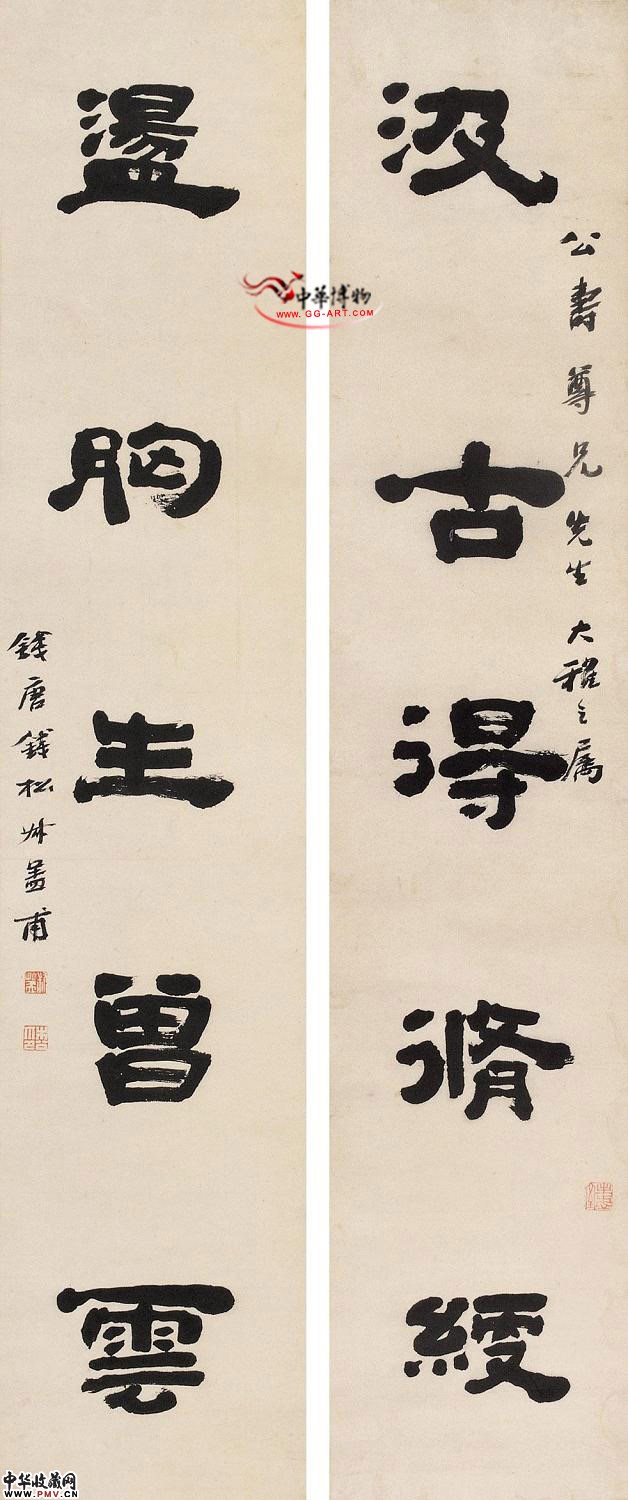 公壽尊兄先生大雅之属
汲古得脩綆
盪胸生曾雲
錢唐錢松叔蓋甫
中華博物
www.GG-ART.COM
中华收藏网
WWW.PMV.CN